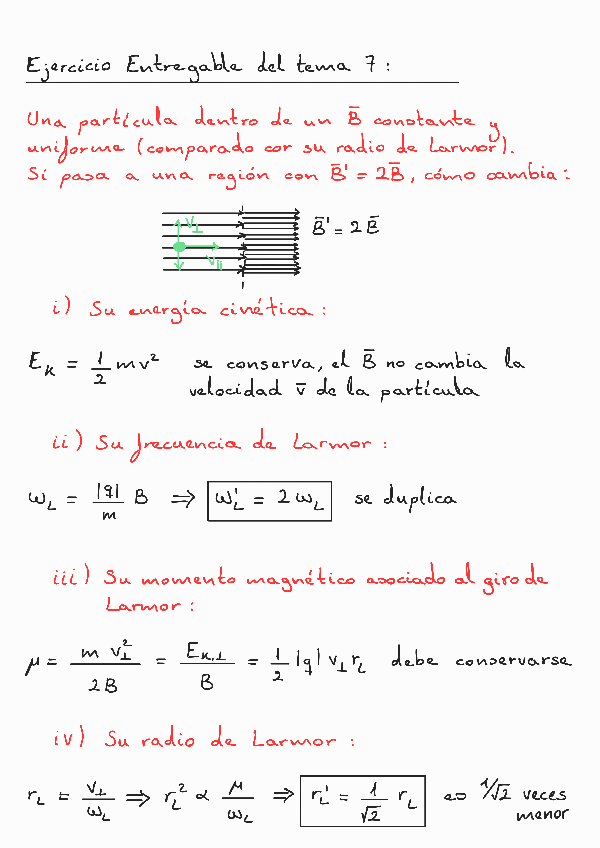 Ejercicio Entregable del tema 7:
Una partícula dentro de un B̄ constante y
uniforme (comparado cor su radio de Larmor).
Si pasa a una región con B̄' = 2B̄, cómo cambia:
v⊥
v∥
B̄' = 2 B̄
i) Su energía cinética:
E_K = 1/2 m v² se conserva, el B̄ no cambia la
velocidad v̄ de la partícula
ii) Su frecuencia de Larmor:
ω_L = |q|/m B ⇒ ω_L' = 2 ω_L se duplica
iii) Su momento magnético asociado al giro de
Larmor:
μ = m v⊥²/2B = E_K,⊥/B = 1/2 |q| v⊥ r_L debe conservarse
iv) Su radio de Larmor:
r_L = v⊥/ω_L ⇒ r_L² ∝ μ/ω_L ⇒ r_L' = 1/√2 r_L es 1/√2 veces
menor